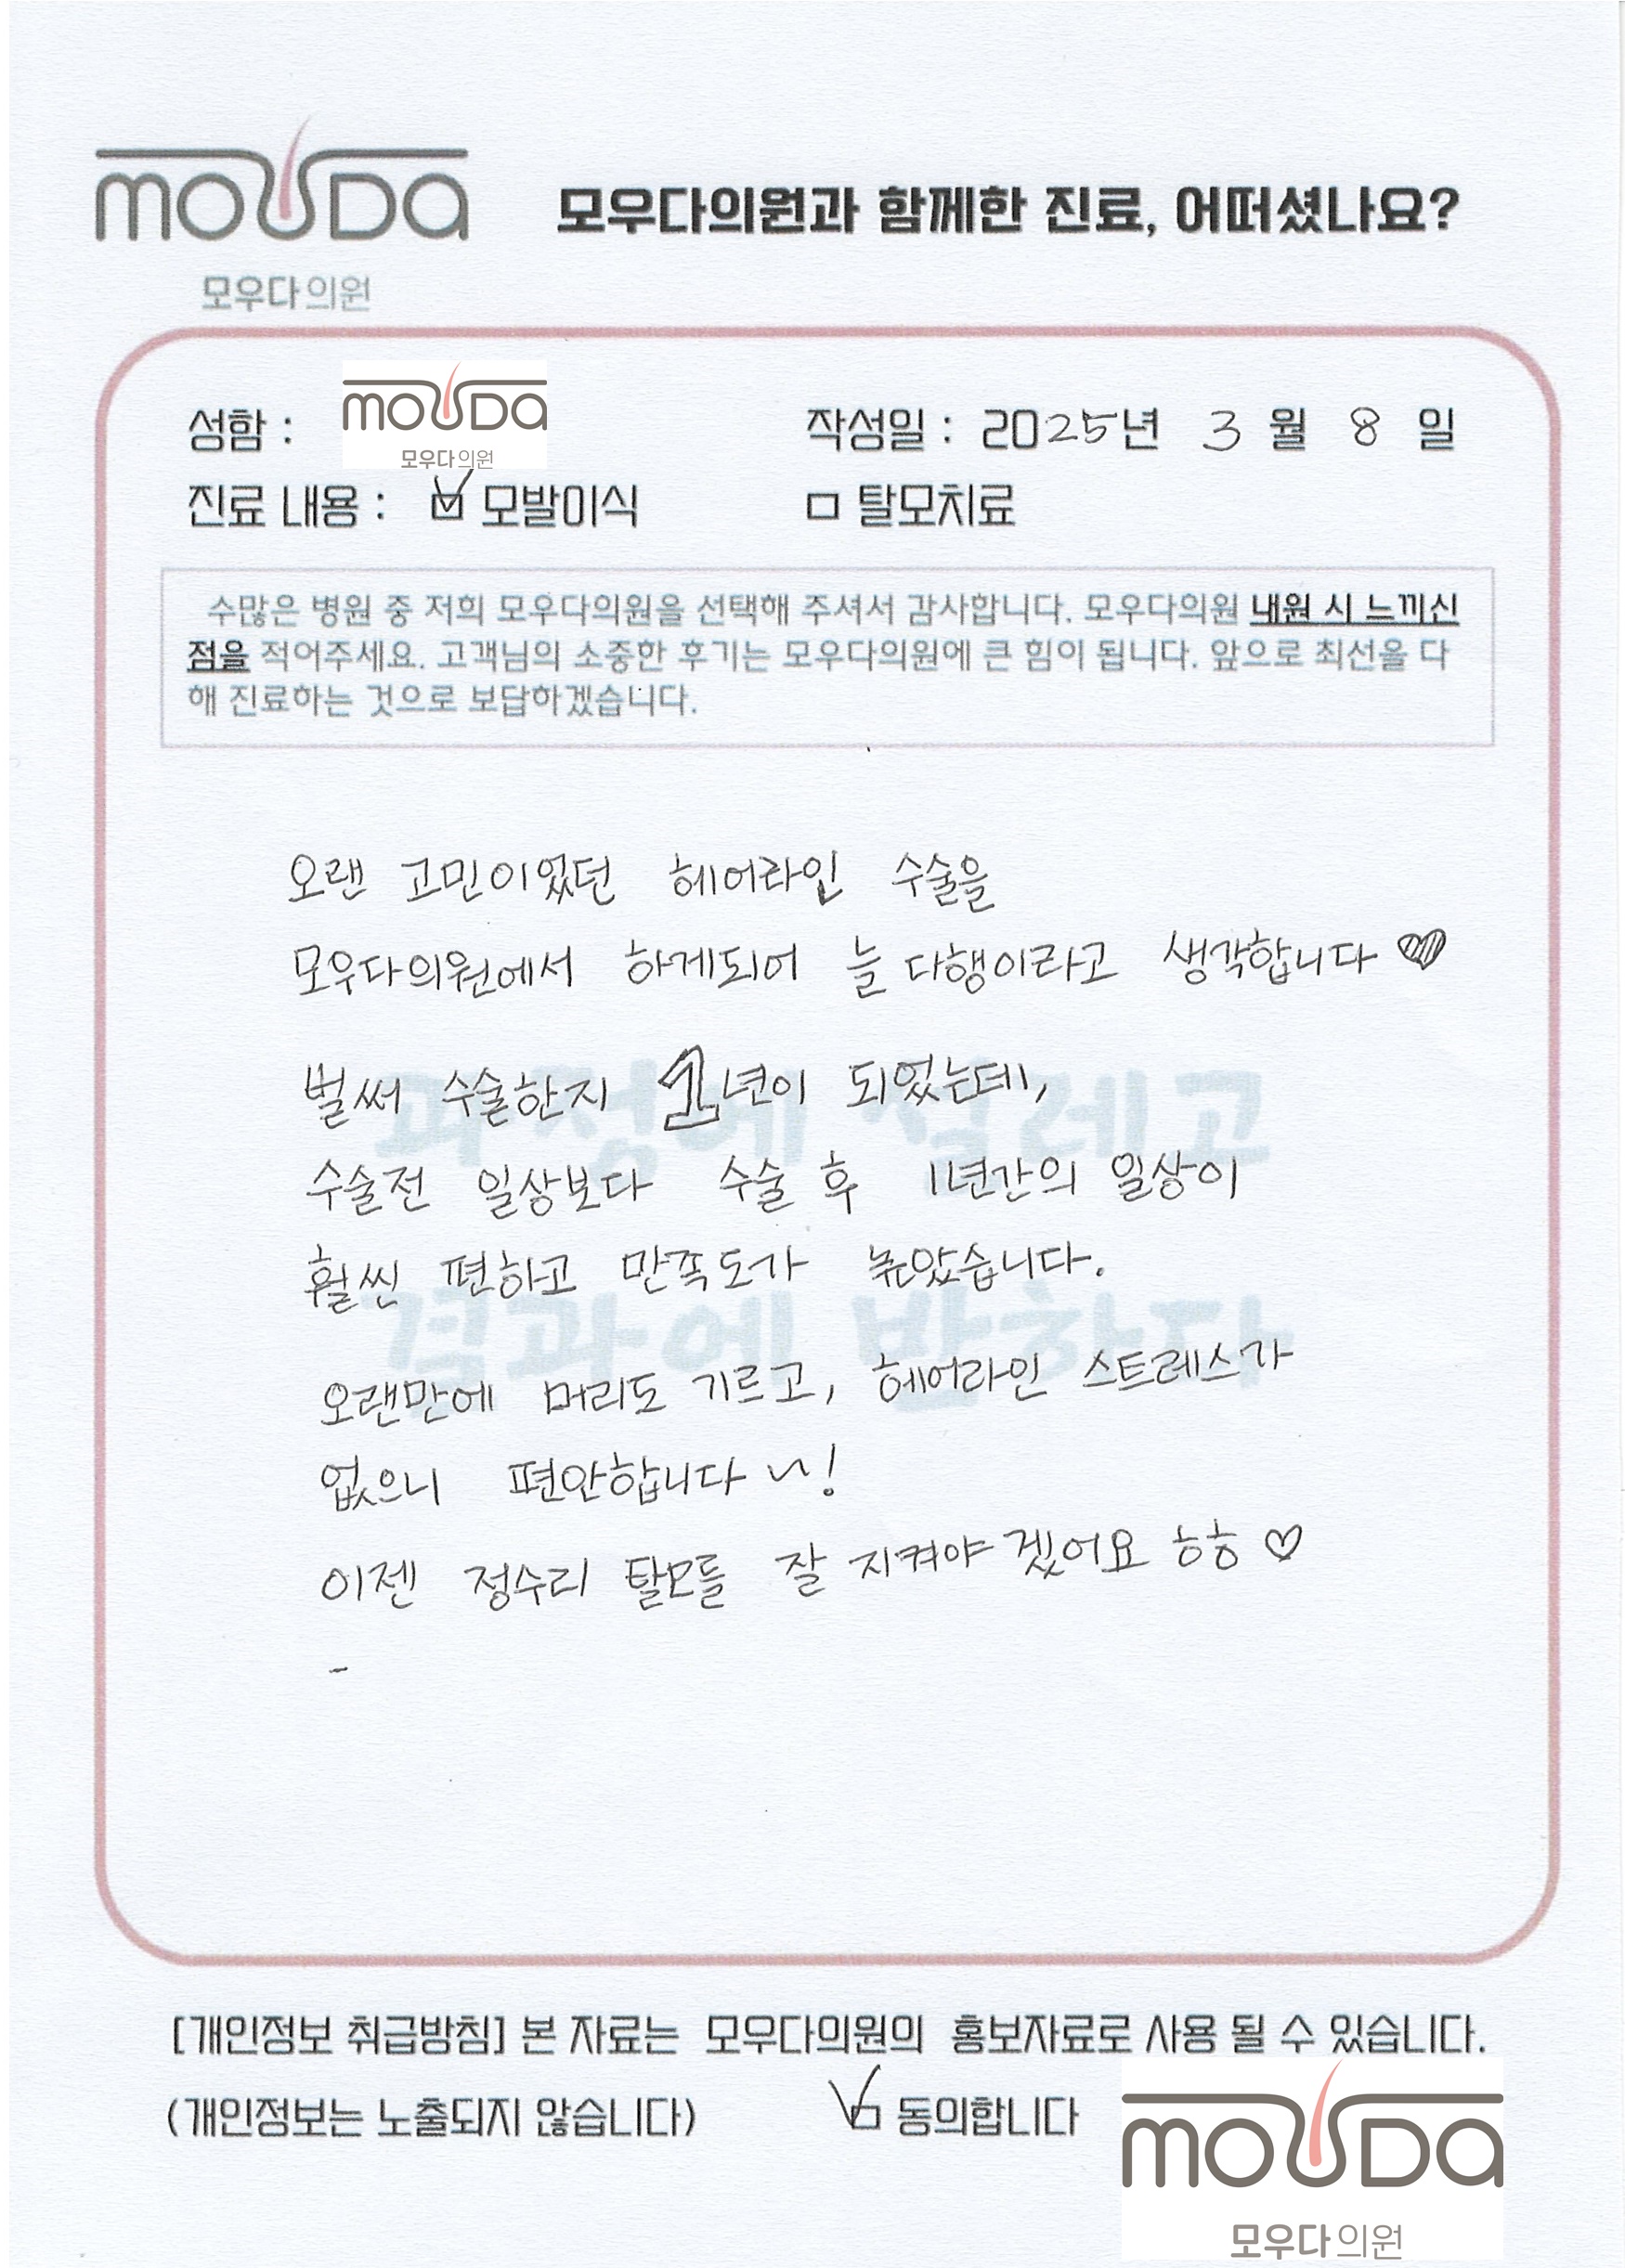 mouda
모우다의원
모우다의원과 함께한 진료, 어떠셨나요?
성함 : mouda 모우다의원
작성일 : 2025년 3월 8일
진료 내용 : ☑ 모발이식 □ 탈모치료
수많은 병원 중 저희 모우다의원을 선택해 주셔서 감사합니다. 모우다의원 내원 시 느끼신
점을 적어주세요. 고객님의 소중한 후기는 모우다의원에 큰 힘이 됩니다. 앞으로 최선을 다
해 진료하는 것으로 보답하겠습니다.
오랜 고민이었던 헤어라인 수술을
모우다의원에서 하게되어 늘 다행이라고 생각합니다 ♥
벌써 수술한지 1년이 되었는데,
수술전 일상보다 수술 후 1년간의 일상이
훨씬 편하고 만족도가 높았습니다.
오랜만에 머리도 기르고, 헤어라인 스트레스가
없으니 편안합니다 ~!
이젠 정수리 탈모를 잘 지켜야겠어요 ㅎㅎ ♡
-
과정에 설레고
결과에 반하다
[개인정보 취급방침] 본 자료는 모우다의원의 홍보자료로 사용 될 수 있습니다.
(개인정보는 노출되지 않습니다) ☑ 동의합니다
mouda
모우다의원